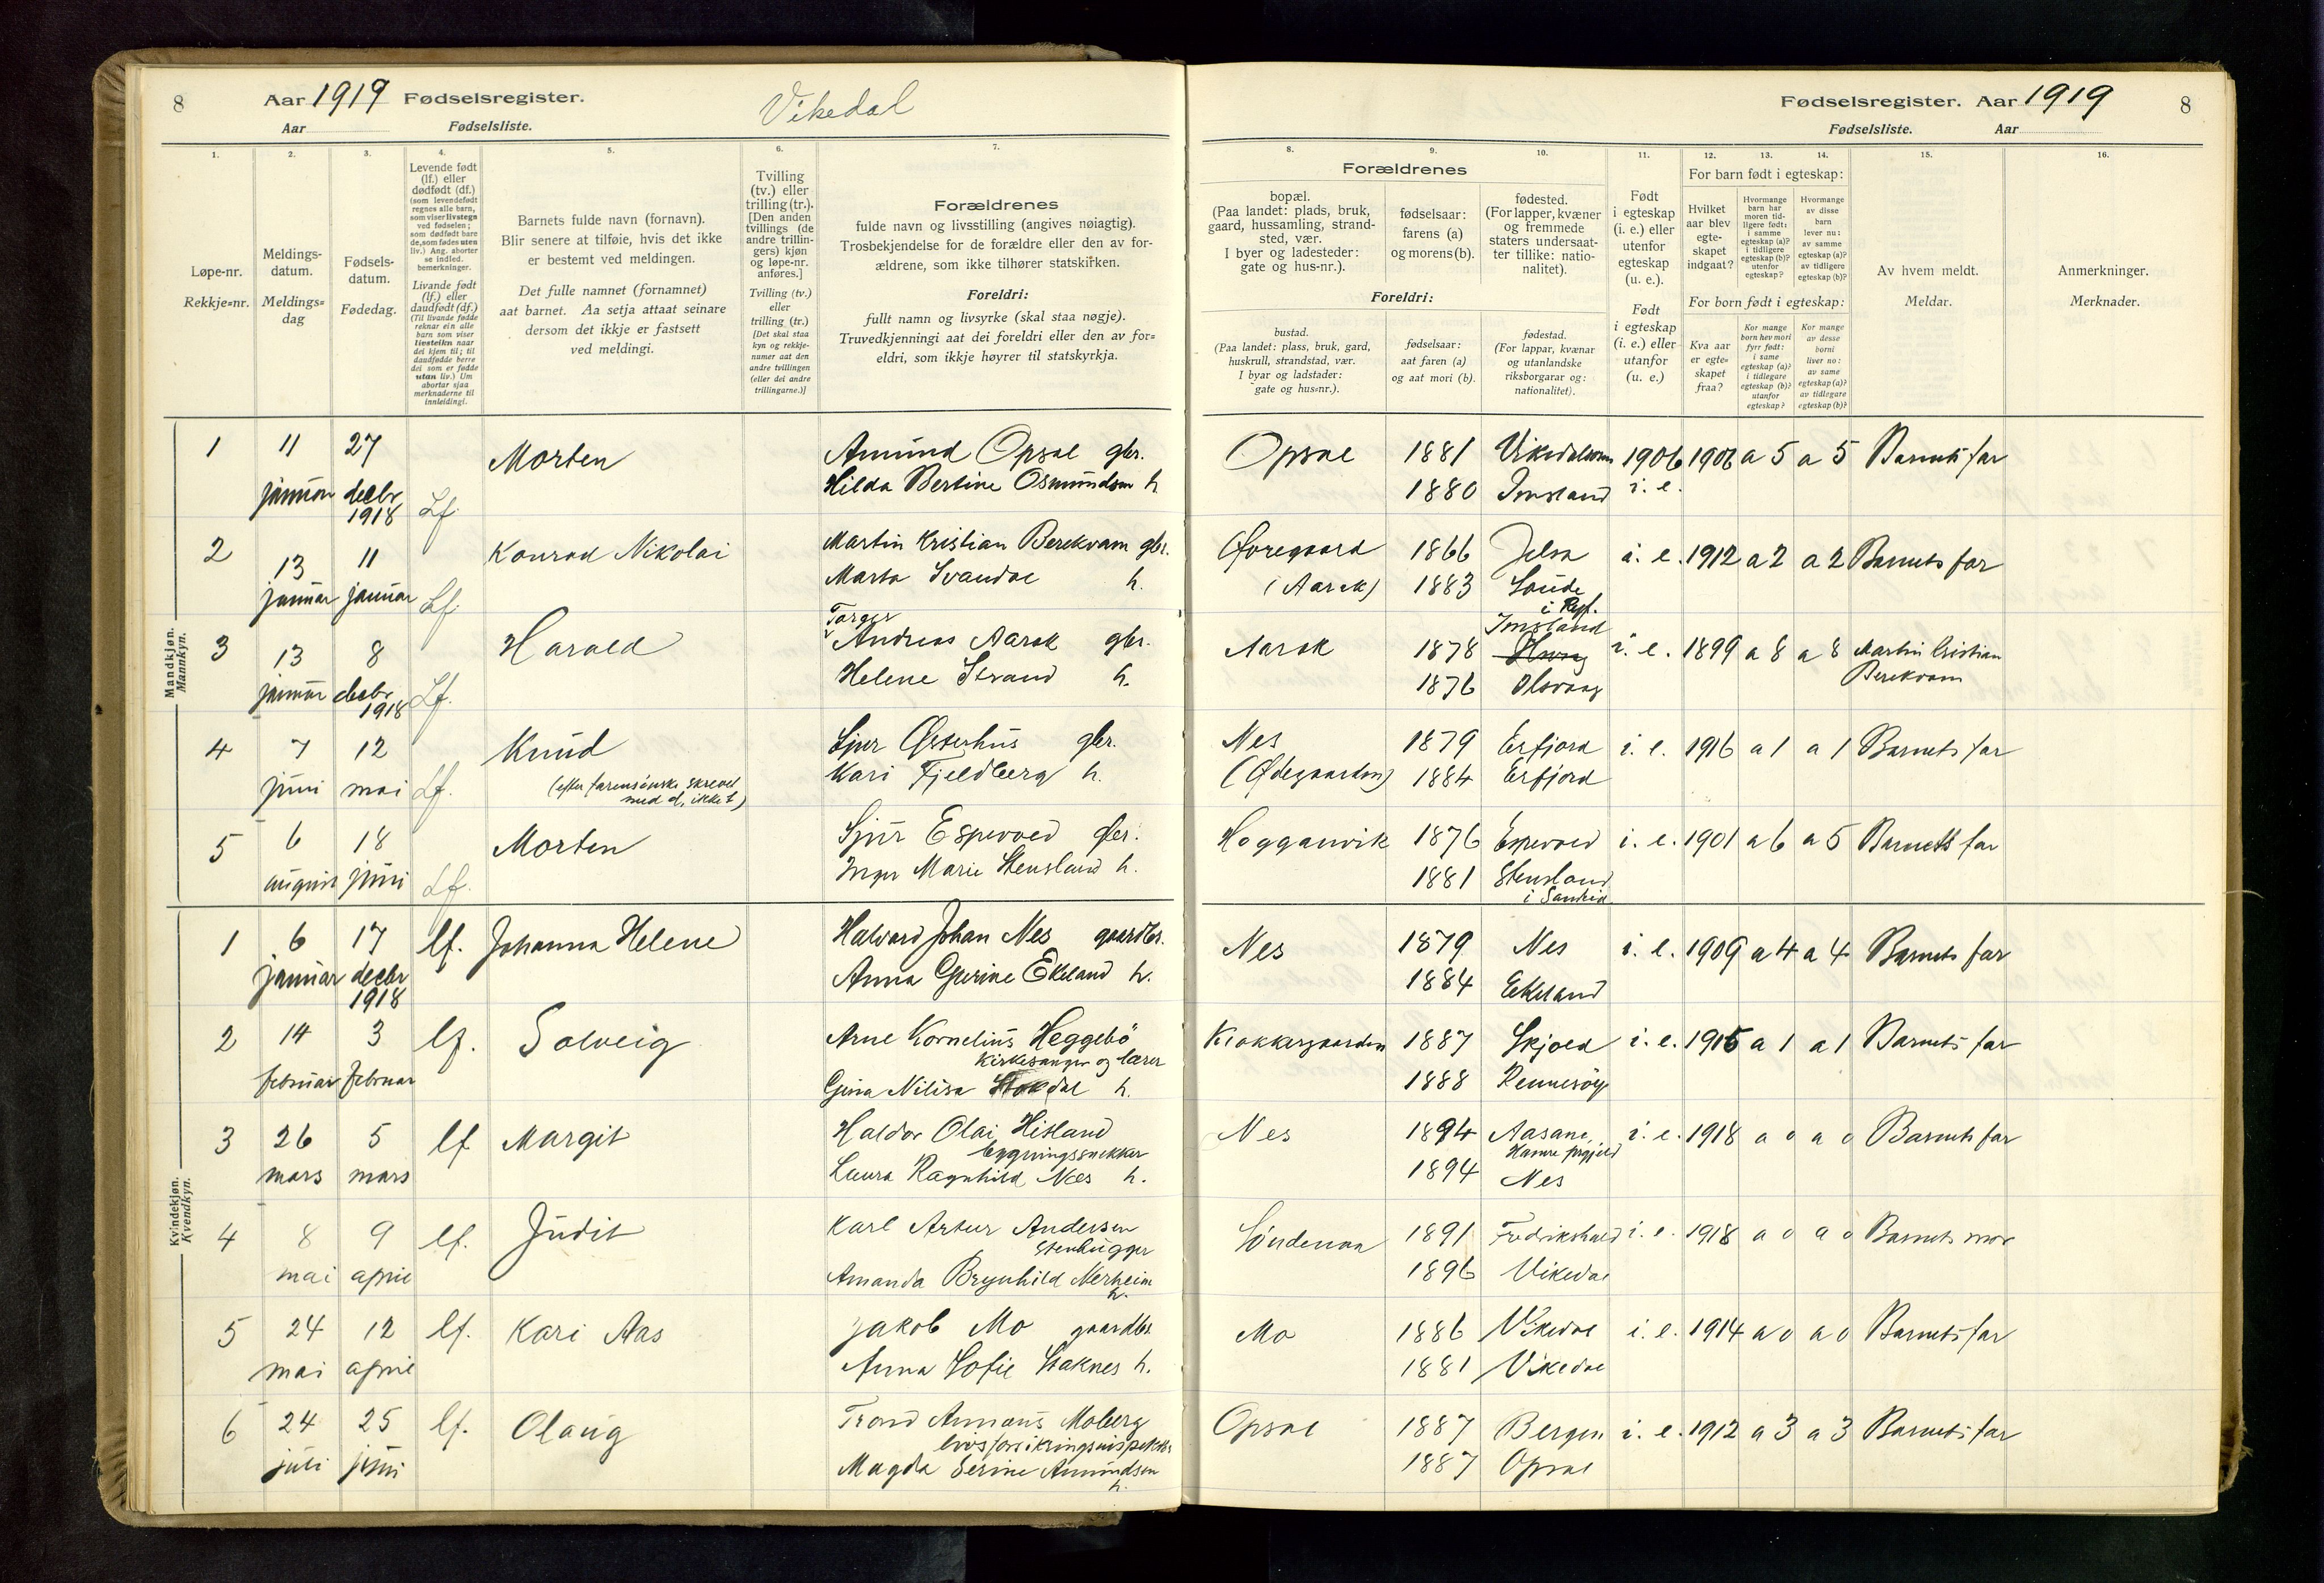 8 Aar 1919 Fødselsregister. Vikedal
Aar Fødselsliste.
Fødselsregister. Aar 1919 8
Fødselsliste. Aar
1. 2. 3. 4. 5. 6. 7.
Løpe-nr.
Rekkje=nr.
Meldings-
datum.
Meldings=
dag
Fødsels-
datum.
Fødedag.
Levende født
(lf.) eller
dødfødt (df.)
(som levendefødt
regnes alle barn,
som viser livstegn
ved fødselen;
som dødfødt bare
de, som fødes uten
liv.) Ang. aborter
se indled.
bemerkninger.
Livande født
(lf.) eller
daudfødt (df.)
(Til livande fødde
reknar ein alle
barn som viser
livsteikn naar
dei kjem til; til
daudfødde berre
dei som er fødde
utan liv.) Um
abortar sjaa
merknaderne til
innleidingi.
Barnets fulde navn (fornavn).
Blir senere at tilføie, hvis det ikke
er bestemt ved meldingen.
Det fulle namnet (fornamnet)
aat barnet. Aa setja attaat seinare
dersom det ikkje er fastsett
ved meldingi.
Tvilling
(tv.) eller
trilling (tr.).
[Den anden
tvillings (de
andre trillin-
gers) kjøn
og løpe-nr.
anføres.]
Tvilling (tv.)
eller
trilling (tr.)
[Det skal staa
kyn og rekkje-
numer aat den
andre tvillingen
(eller dei andre
trillingarne.)]
Forældrenes
fulde navn og livsstilling (angives nøiagtig).
Trosbekjendelse for de forældre eller den av for-
ældrene, som ikke tilhører statskirken.
Foreldri:
fullt namn og livsyrke (skal staa nøgje).
Truvedkjenningi aat dei foreldri eller den av for=
eldri, som ikkje høyrer til statskyrkja.
8. 9. 10. 11. 12. 13. 14. 15. 16.
Forældrenes
bopæl.
(Paa landet: plads, bruk,
gaard, hussamling, strand-
sted, vær.
I byer og ladesteder:
gate og hus-nr.).
fødselsaar:
farens (a)
og morens (b).
fødested.
(For lapper, kvæner
og fremmede
staters undersaat-
ter tillike: natio-
nalitet).
Foreldri:
bustad.
(Paa landet: plass, bruk, gard,
huskrull, strandstad, vær.
I byar og ladstader:
gate og hus=nr.).
fødselsaar:
aat faren (a)
og aat mori (b).
fødestad.
(For lappar, kvænar
og utanlandske
riksborgarar og:
nationalitet).
Født
i egteskap
(i. e.) eller
utenfor
egteskap
(u. e.).
Født
i egteskap
(i. e.) eller
utanfor
(u. e.)
For barn født i egteskap:
Hvilket
aar blev
egte-
skapet
indgaat?
Hvormange
barn har
moren tid-
ligere født:
i samme
egteskap (a)?
i tidligere
egteskap (b)?
utenfor
egteskap?
Hvormange
av disse
barn
lever nu:
av samme
egteskap (a)?
av tidligere
egteskap (b)?
For born født i egteskap:
Kva aar
er egte=
skapet
fraa?
Kor mange
born hev mori
fyrr født:
i same
egteskap (a)?
i tidlegare
egteskap (b)?
utanfor
egteskap?
Kor mange
av desse
borni
liver no:
av same
egteskap (a)?
av tidlegare
egteskap (b)?
Av hvem meldt.
Meldar.
Anmerkninger.
Merknader.
Mandkjøn.
Mankyn.
1 11 27 Morten Amund Opsal gbr. Opsal 1881 1906 1906 a 5 a 5 Barnets far
januar decbr 1918 Lf. Hilda Bertine Osmundsen h. 1880 Imsland i. e.
2 13 11 Konrad Nikolai Martin Kristian Berekvam gbr. Øvregaard 1866 Jelsa i. e. 1912 a 2 a 2 Barnets far
januar januar Lf. Marta Svandal h. (Aarek) 1883 Saude
i Ryf.
3 13 8 Harald Torger Andreas Aarek gbr. Aarek 1878 Imsland i. e. 1899 a 8 a 8 Martin Cristian
januar decbr 1918 Lf. Helene Strand h. 1876 Olsvaag Berekvam
4 7 12 Knud Sjur Østerhus gbr. Nes 1879 Erfjord i. e. 1916 a 1 a 1 Barnets far
juni mai Lf. (efter farens ønske skrevet
med d, ikke t) Kari Fjeldberg h. (Ødegaarden) 1884 Erfjord
5 6 18 Morten Sjur Espevold gbr. Hogganvik 1876 Espevold i. e. 1901 a 6 a 5 Barnets far
august juni Lf. Inger Marie Stensland h. 1881 Stensland
i Sandeid
Kvindekjøn.
Kvendkyn.
1 6 17 lf. Johanna Helene Halvard Johan Nes gaardbr. Nes 1879 Nes i. e. 1909 a 4 a 4 Barnets far
januar decbr 1918 Anna Gurine Ekeland h. 1884 Ekeland
2 14 3 lf. Solveig Arne Kornelius Heggebö Klokkergaarden 1887 Skjold i. e. 1915 a 1 a 1 Barnets far
kirkesanger og lærer
februar februar Gina Nilisa h. 1888 Rennesöy
3 26 5 lf Margit Haldor Olai Hisland Nes 1894 Aasane, i. e. 1918 a 0 a 0 Barnets far
bygningssnekker Hamre prgjeld
mars mars Laura Ragnhild Nes h. 1894 Nes
4 8 9 lf. Judit Karl Artur Andersen Söndenaa 1891 Fredrikshald i. e. 1918 a 0 a 0 Barnets mor
stenhugger
mai april Amanda Brynhild Nerheim h. 1896 Vikedal
5 24 12 lf. Kari Aas Jakob Mo gaardbr. Mo 1886 Vikedal i. e. 1914 a 0 a 0 Barnets far
mai april Anna Sofie Staknes h. 1881 Vikedal
6 24 25 lf. Olaug Trond Moberg Opsal 1887 Bergen i. e. 1912 a 3 a 3 Barnets far
livsforsikringsinspektør
juli juni Magda Serine Amundsen h. 1887 Opsal